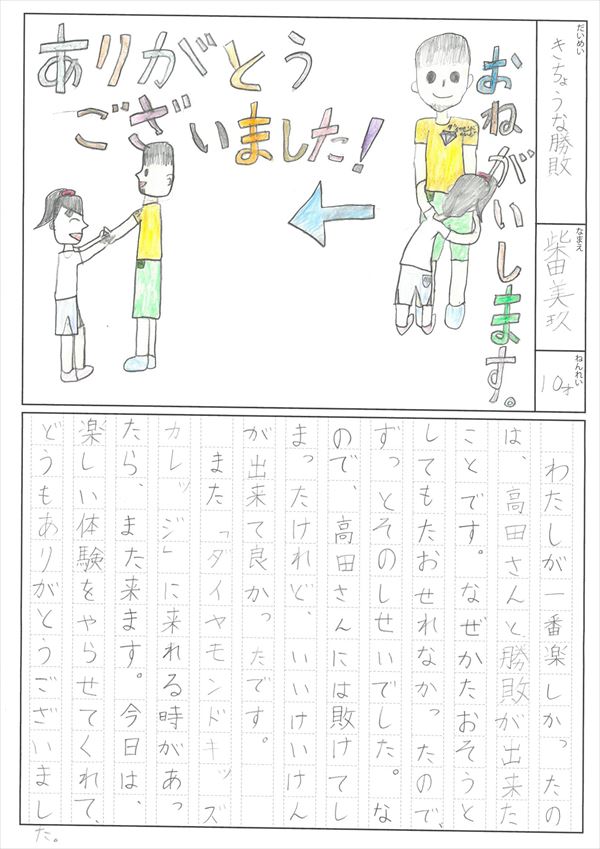 だいめい
きちょうな勝敗
なまえ
柴田美玖
ねんれい
10才
おねがいします。
ありがとう
ございました!
わたしが一番楽しかったの
は、高田さんと勝敗が出来た
ことです。なぜかたおそうと
してもたおせれなかったので、
ずっとそのしせいでした。な
ので、高田さんには敗けてし
まったけれど、いいけいけん
が出来て良かったです。
また「ダイヤモンドキッズ
カレッジ」に来れる時があっ
たら、また来ます。今日は、
楽しい体験をやらせてくれて、
どうもありがとうございました。